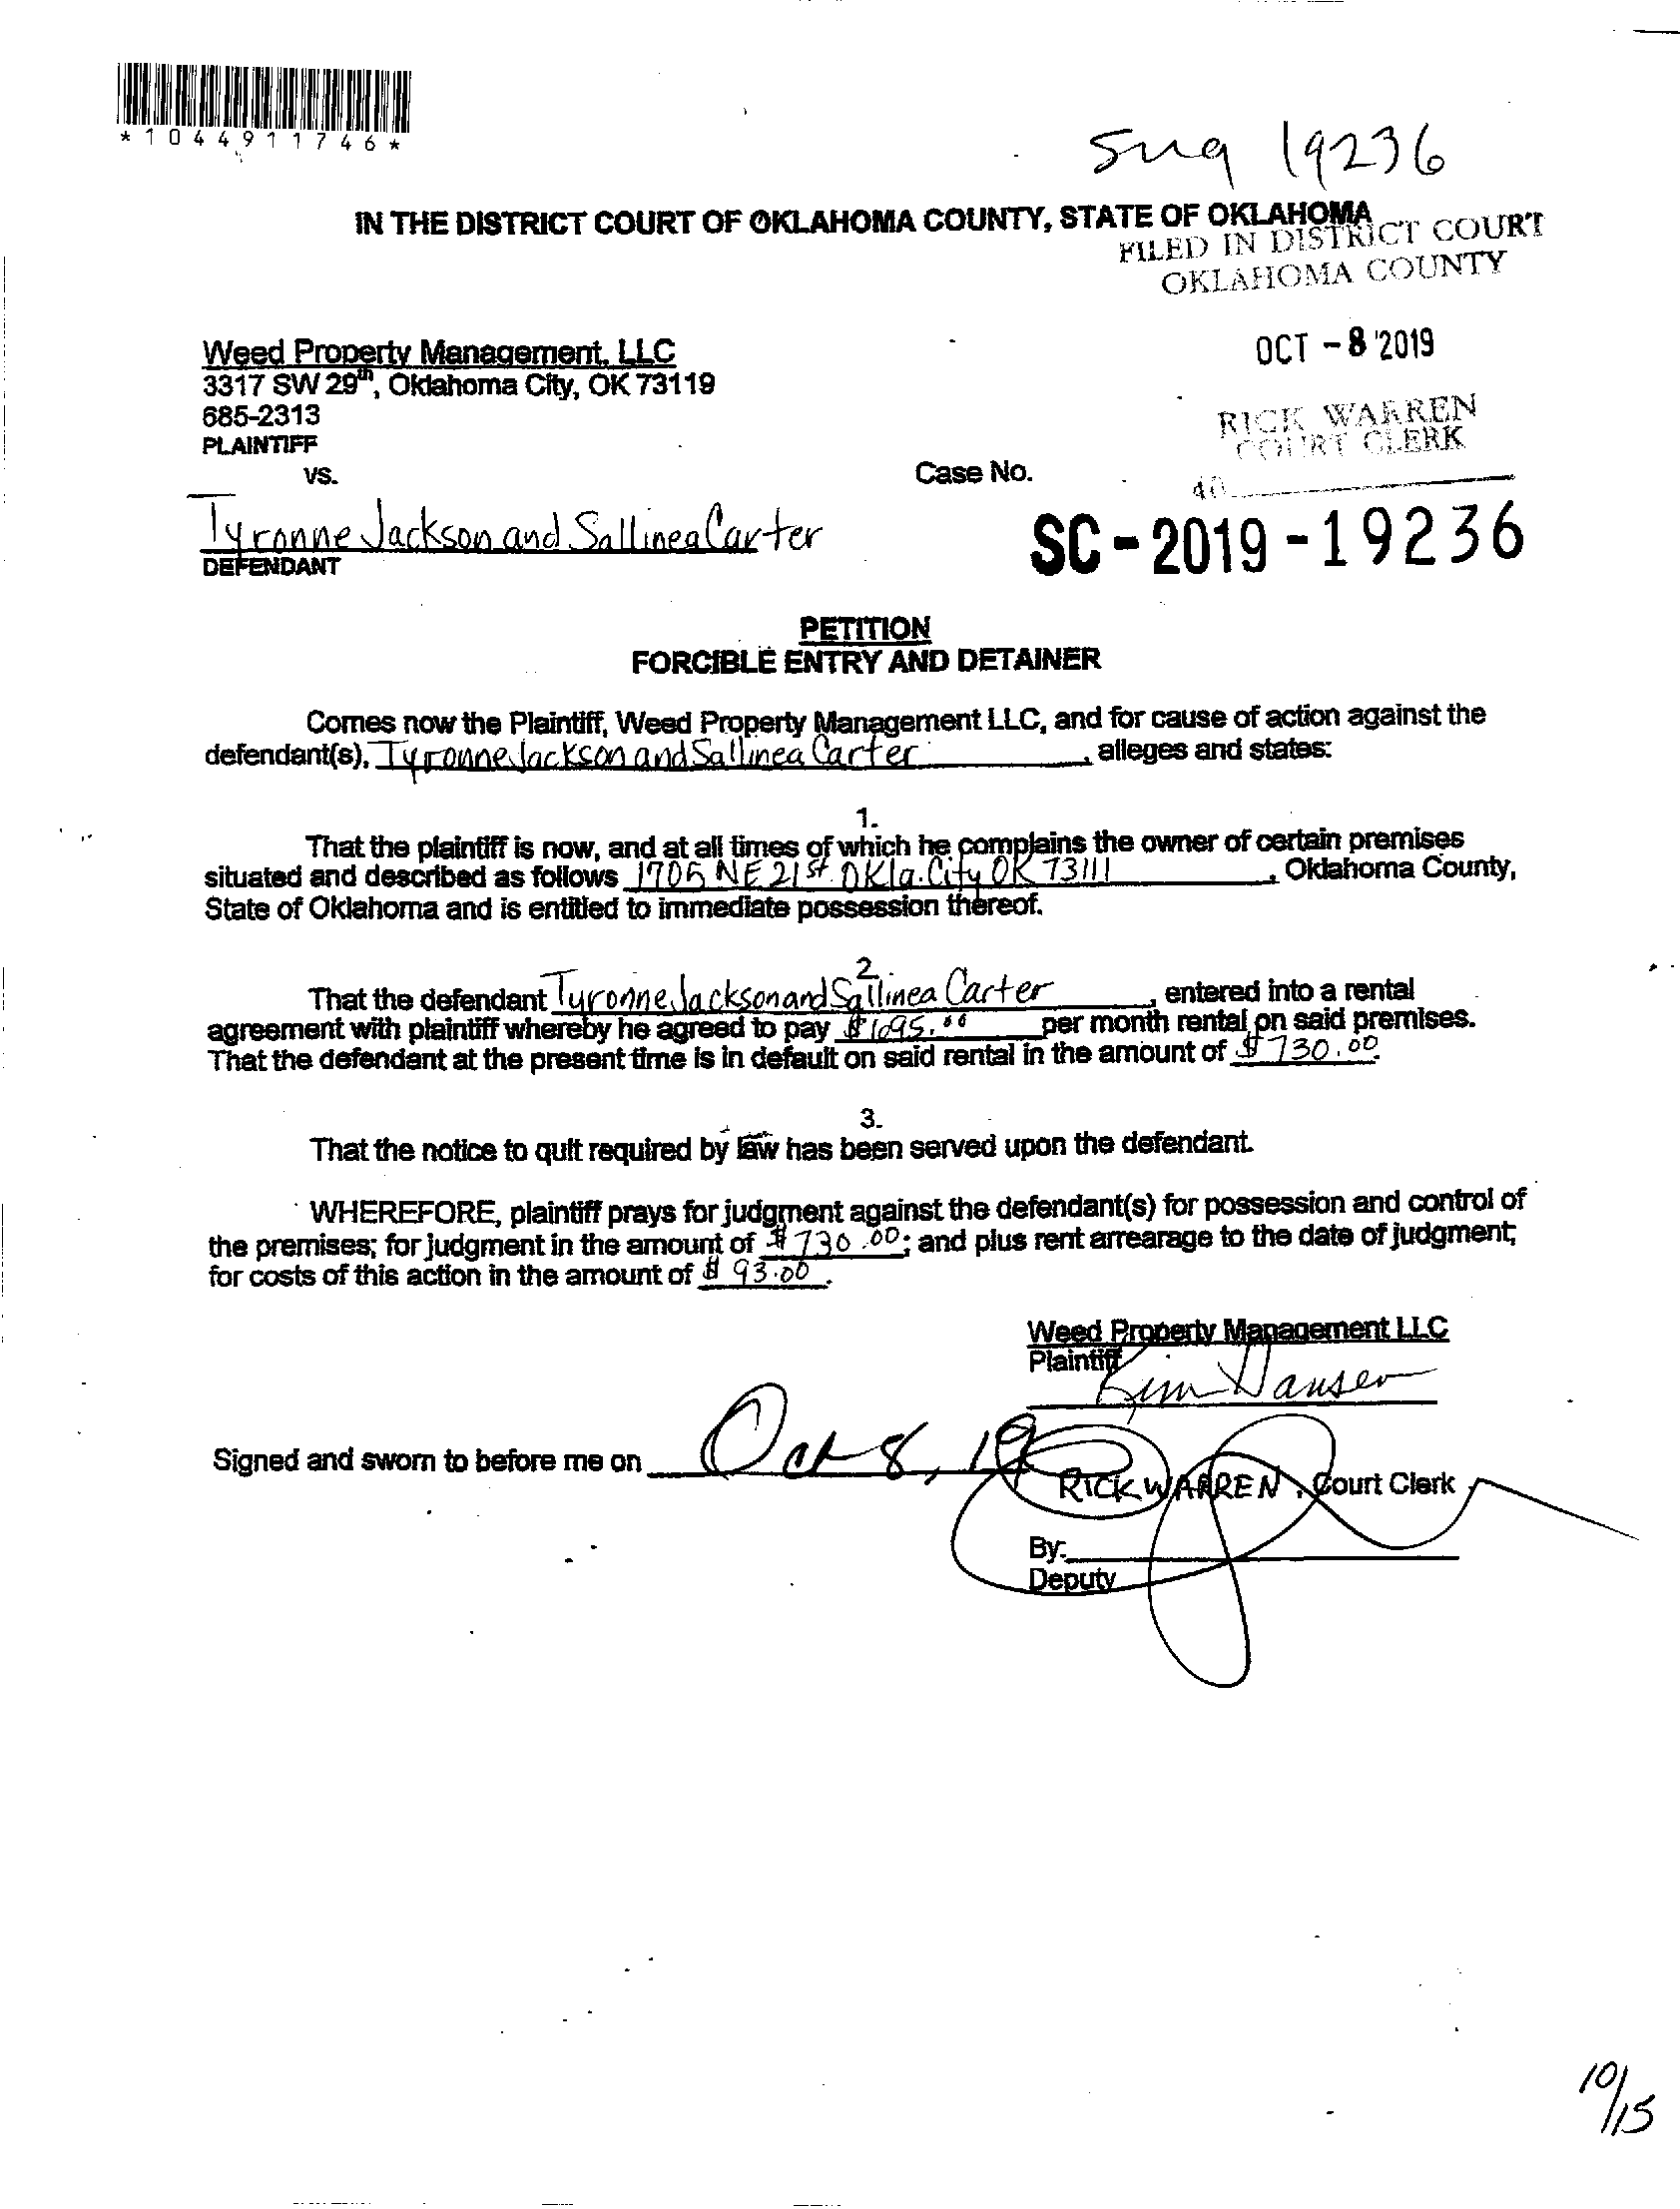 *1044911746*
19236
IN THE DISTRICT COURT OF OKLAHOMA COUNTY, STATE OF OKLAHOMA
FILED IN DISTRICT COURT
OKLAHOMA COUNTY
Weed Property Management, LLC
OCT -8 2019
3317 SW 29th, Oklahoma City, OK 73119
685-2313
RICK WARREN
COURT CLERK
PLAINTIFF
vs.
Case No.
40
Tyronne Jackson and Sallinea Carter
SC-2019-19236
DEFENDANT
PETITION
FORCIBLE ENTRY AND DETAINER
Comes now the Plaintiff, Weed Property Management LLC, and for cause of action against the
defendant(s), Tyronne Jackson and Sallinea Carter, alleges and states:
1.
That the plaintiff is now, and at all times of which he complains the owner of certain premises
situated and described as follows 1705 NE 21st. Okla. City OK 73111, Oklahoma County,
State of Oklahoma and is entitled to immediate possession thereof.
2.
That the defendant Tyronne Jackson and Sallinea Carter, entered into a rental
agreement with plaintiff whereby he agreed to pay $1095.00 per month rental on said premises.
That the defendant at the present time is in default on said rental in the amount of $730.00.
3.
That the notice to quit required by law has been served upon the defendant.
WHEREFORE, plaintiff prays for judgment against the defendant(s) for possession and control of
the premises; for judgment in the amount of $730.00; and plus rent arrearage to the date of judgment;
for costs of this action in the amount of $93.00.
Weed Property Management LLC
Plaintiff
Kim Hansen
Signed and sworn to before me on Oct 8, 19
RICK WARREN, Court Clerk
By:
Deputy
10/15